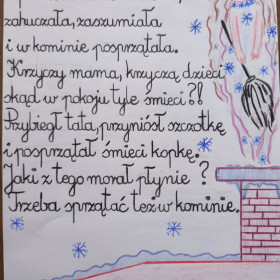 zahuczała, zaszumiała
i w kominie posprzątała.
Krzyczy mama, krzyczą dzieci
skąd w pokoju tyle śmieci?!
Przybiegł tata, przyniósł szczotkę
i posprzątał śmieci kopkę.
Jaki z tego morał płynie?
Trzeba sprzątać też w kominie.